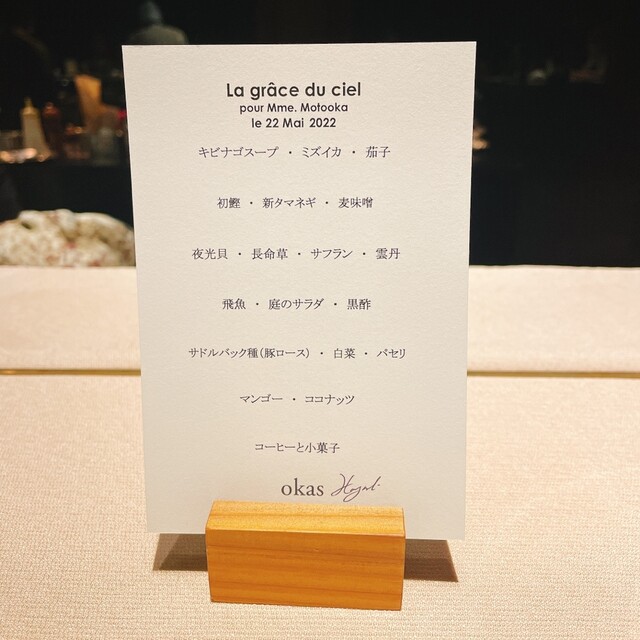 La grâce du ciel
pour Mme. Motooka
le 22 Mai 2022
キビナゴスープ ・ ミズイカ ・ 茄子
初鰹 ・ 新タマネギ ・ 麦味噌
夜光貝 ・ 長命草 ・ サフラン ・ 雲丹
飛魚 ・ 庭のサラダ ・ 黒酢
サドルバック種（豚ロース） ・ 白菜 ・ パセリ
マンゴー ・ ココナッツ
コーヒーと小菓子
okas